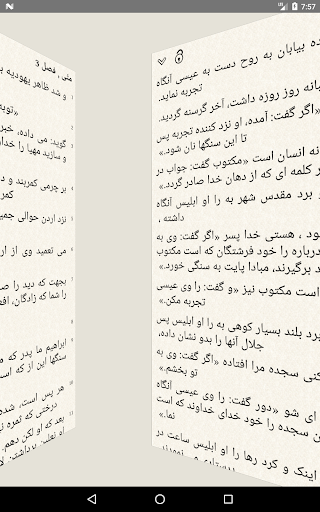 7:57
متی , فصل 3
و شد ظاهر یهودیه
«توبه
گوید: می داده، خبر
و سازید مهیا را خدا
بر چرمی کمربند و
نزد اردن حوالی جمیع
می تعمید وی از ارد
بجهت که دید را
را شما که زادگان، افعی
ابراهیم ما پدر که
سنگها این از که است
هر پس است، شده
درختی که ثمره
بعد که او لکن دهم.
او نعلین برداشتن لا
ه بیابان به روح دست به عیسی آنگاه
تجربه نماید.
بانه روز روزه داشت، آخر گرسنه گردید.
«اگر گفت: آمده، او نزد کننده تجربه پس
تا این سنگها نان شود.»
نه انسان است «مکتوب گفت: جواب در
ر کلمه ای که از دهان خدا صادر گردد.»
برد مقدس شهر به را او ابلیس آنگاه
داشته ,
د , هستی خدا پسر «اگر گفت: وی به
درباره را خود فرشتگان که است مکتوب
د برگیرند، مبادا پایت به سنگی خورد.»
است مکتوب نیز «و گفت: را وی عیسی
تجربه مکن.»
برد بلند بسیار کوهی به را او ابلیس پس
جلال آنها را بدو نشان داده,
کنی سجده مرا افتاده «اگر گفت: وی به
تو بخشم.»
ای شو «دور گفت: را وی عیسی آنگاه
ن سجده را خود خدای خداوند که است
نما.»
اینک و کرد رها را او ابلیس ساعت در
پرستاری می نمودند.